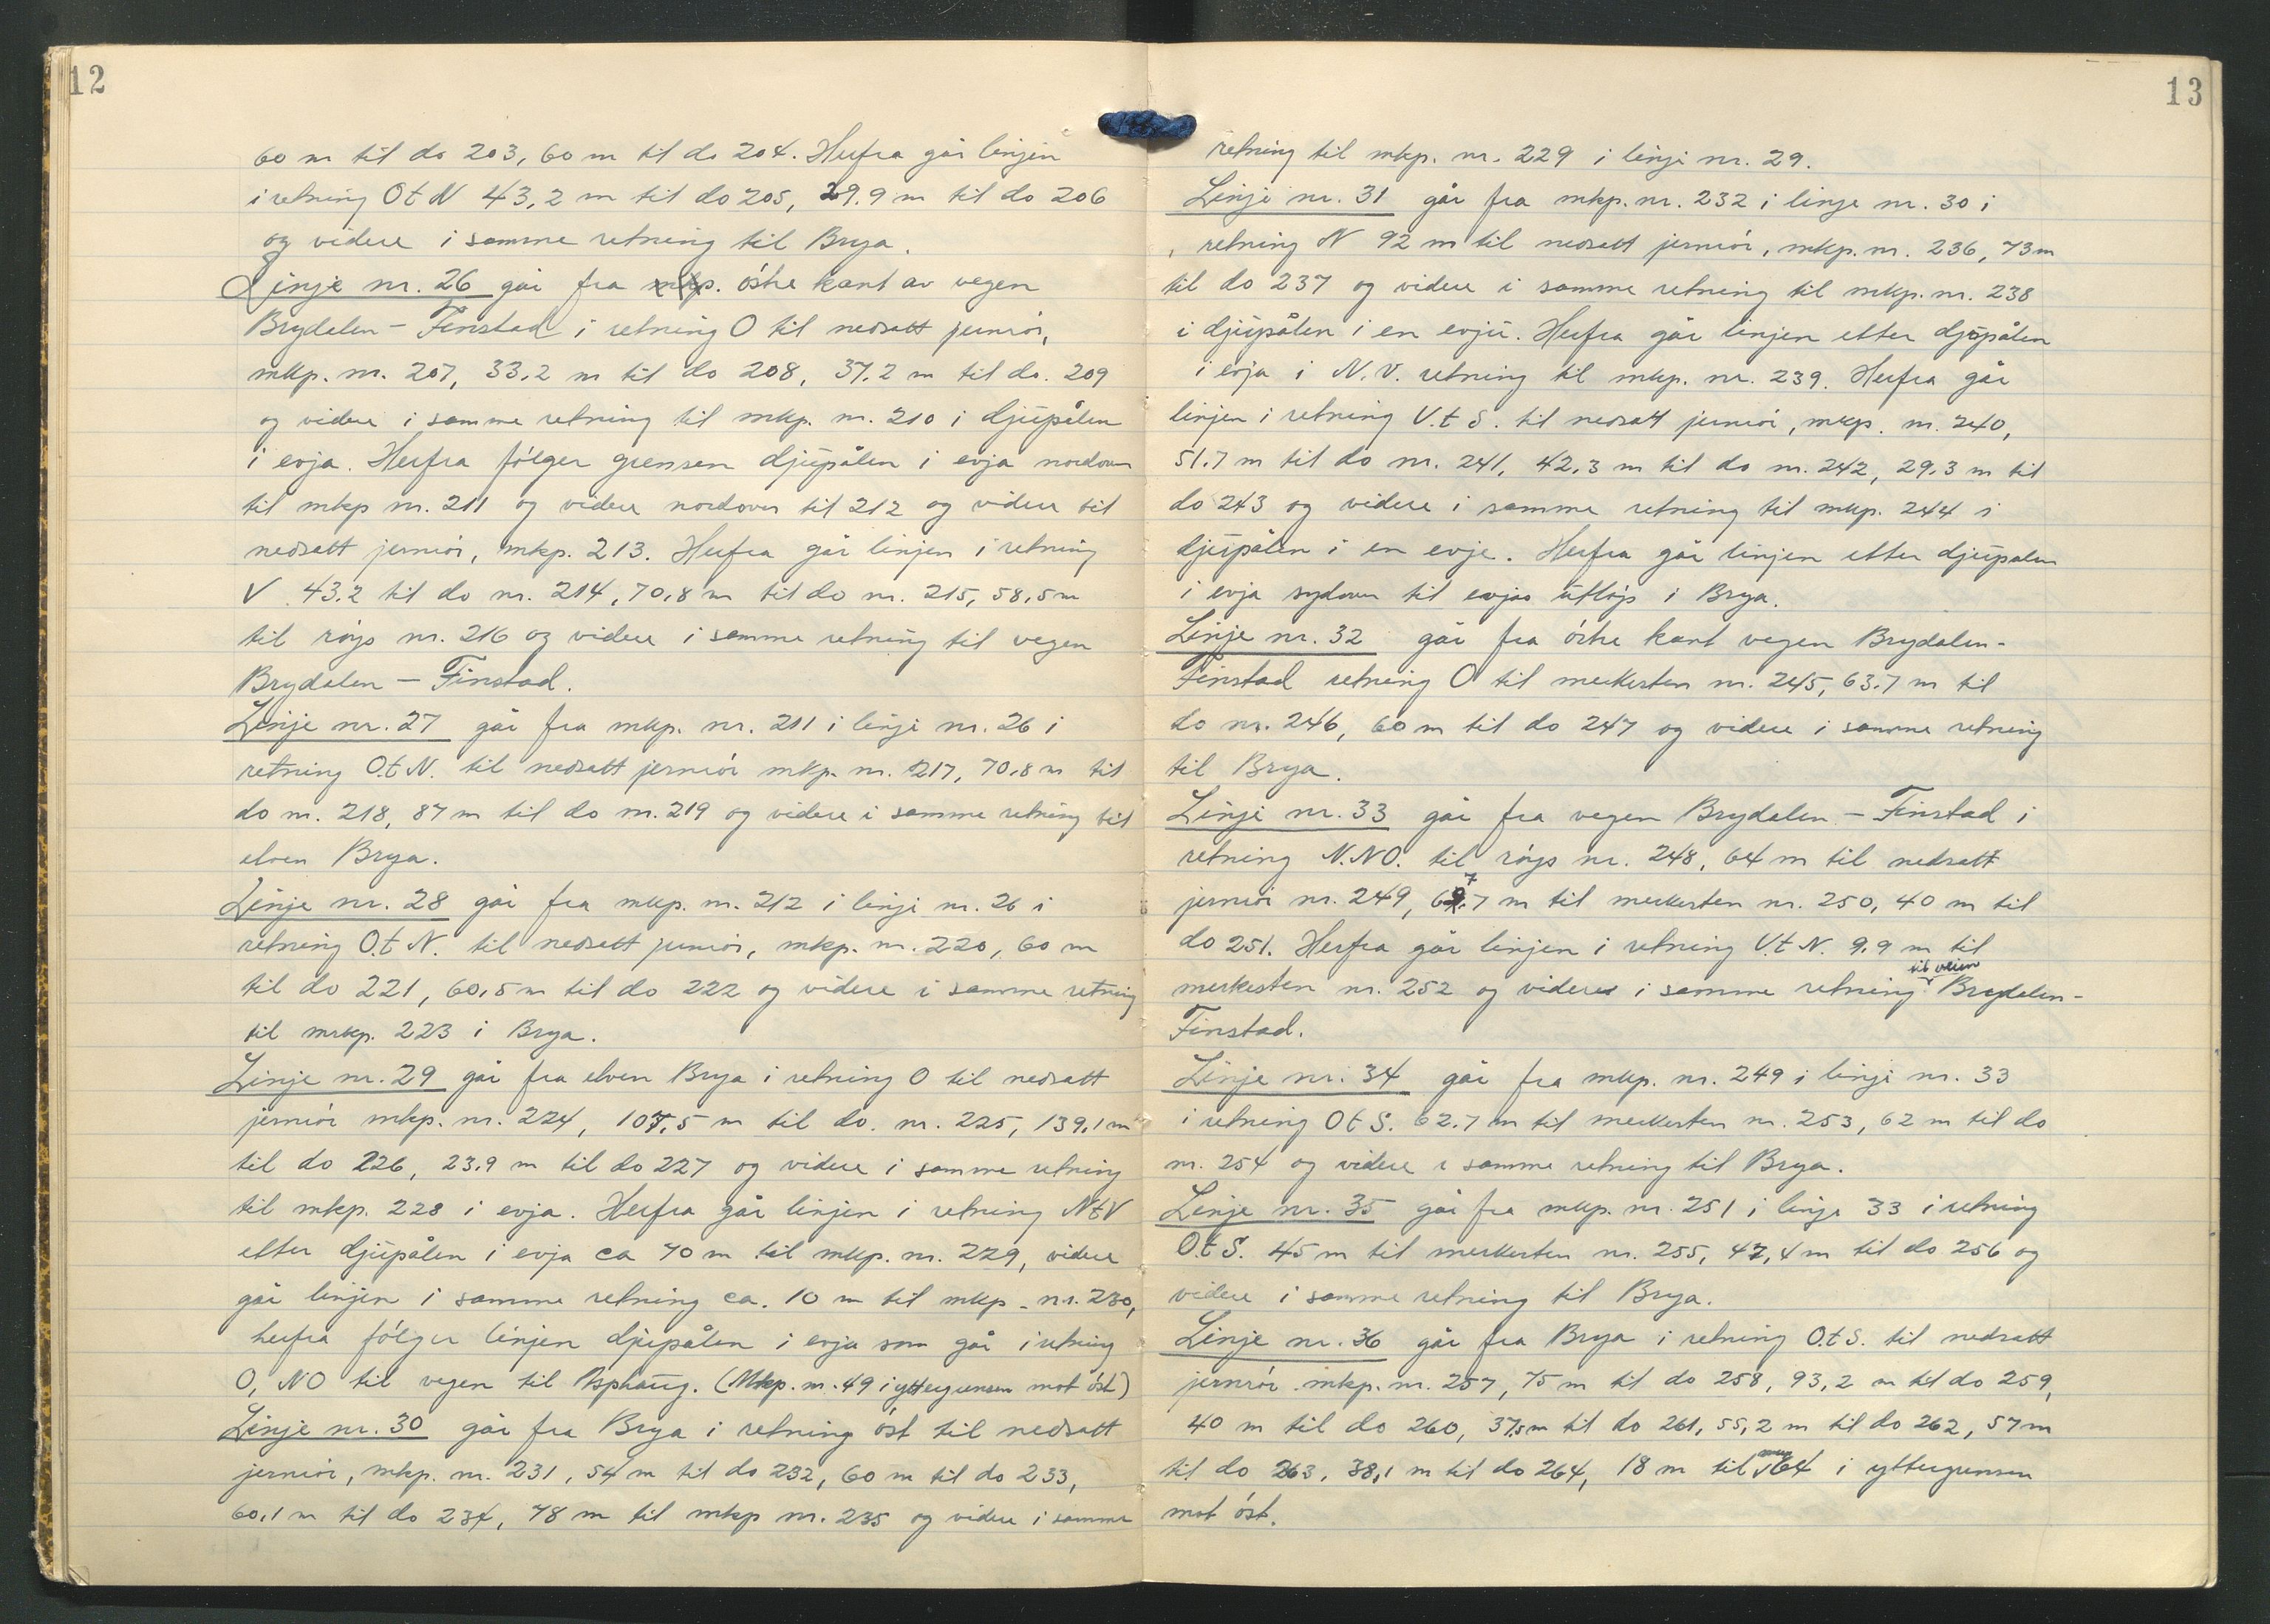 12
60 m til do 203, 60 m til do 204. Herfra går linjen
i retning O t N 43,2 m til do 205, 29.9 m til do 206
og videre i samme retning til Brya.
Linje nr. 26 går fra mkp. östre kant av vegen
Brydalen – Finstad i retning O til nedsatt jernrör,
mkp. nr. 207, 33,2 m til do 208, 37.2 m til do. 209
og videre i samme retning til mkp. nr. 210 i djupålen
i evja. Herfra fölger grensen djupålen i evja nordover
til mkp nr. 211 og videre nordover til 212 og videre til
nedsatt jernrör, mkp. 213. Herfra går linjen i retning
V 43,2 til do nr. 214, 70,8 m til do nr. 215, 58,5 m
til röys nr. 216 og videre i samme retning til vegen
Brydalen – Finstad.
Linje nr. 27 går fra mkp. nr. 211 i linje nr. 26 i
retning O.t N. til nedsatt jernrör mkp. nr. 217, 70,8 m til
do nr. 218, 87 m til do nr. 219 og videre i samme retning til
elven Brya.
Linje nr. 28 går fra mkp. nr. 212 i linje nr. 26 i
retning O.t N. til nedsatt jernrör, mkp. nr. 220, 60 m
til do 221, 60,5 m til do 222 og videre i samme retning
til mrkp. 223 i Brya.
Linje nr. 29 går fra elven Brya i retning O til nedsatt
jernrör mkp. nr. 224, 107,5 m til do. nr. 225, 139,1 m
til do 226, 23,9 m til do 227 og videre i samme retning
til mkp. 228 i evja. Herfra går linjen i retning N t V
etter djupålen i evja ca 70 m til mkp. nr. 229, videre
går linjen i samme retning ca. 10 m til mkp. nr. 230,
herfra fölger linjen djupålen i evja som går i retning
O, NO til vegen til Asphaug. (Mkp. nr. 49 i yttergrensen mot öst)
Linje nr. 30 går fra Brya i retning öst til nedsatt
jernrör, mkp. nr. 231, 54 m til do 232, 60 m til do 233,
60,1 m til do 234, 78 m til mkp nr. 235 og videre i samme
13
retning til mkp. nr. 229 i linje nr. 29.
Linje nr. 31 går fra mkp. nr. 232 i linje nr. 30 i
retning N 92 m til nedsatt jernrör, mkp. nr. 236, 73 m
til do 237 og videre i samme retning til mkp. nr. 238
i djupålen i en evju. Herfra går linjen etter djupålen
i evja i N.V. retning til mkp. nr. 239. Herfra går
linjen i retning V. t S. til nedsatt jernrör, mkp. nr. 240,
51.7 m til do nr. 241, 42,3 m til do nr. 242, 29,3 m til
do 243 og videre i samme retning til mkp. 244 i
djupålen i en evje. Herfra går linjen etter djupålen
i evja sydover til evjas utlöp i Brya.
Linje nr. 32 går fra östre kant vegen Brydalen-
Finstad retning O til merkesten nr. 245, 63.7 m til
do nr. 246, 60 m til do 247 og videre i samme retning
til Brya.
Linje nr. 33 går fra vegen Brydalen – Finstad i
retning N.NO. til röys nr. 248, 64 m til nedsatt
jernrör nr. 249, 67,7 m til merkesten nr. 250, 40 m til
do 251. Herfra går linjen i retning V.t N. 9.9 m til
merkesten nr. 252 og videre i samme retning til veien Brydalen-
Finstad.
Linje nr. 34 går fra mkp. nr. 249 i linje nr. 33
i retning O t S. 62.7 m til merkesten nr. 253, 62 m til do
nr. 254 og videre i samme retning til Brya.
Linje nr. 35 går fra mkp. nr. 251 i linje 33 i retning
O.t S. 45 m til merkesten nr. 255, 47,4 m til do 256 og
videre i samme retning til Brya.
Linje nr. 36 går fra Brya i retning O.t S. til nedsatt
jernrör mkp. nr. 257, 75 m til do 258, 93,2 m til do 259,
40 m til do 260, 37,5 m til do 261, 55,2 m til do 262, 57 m
til do 263, 38,1 m til do 264, 18 m til 64 i yttergrensen
mot öst.